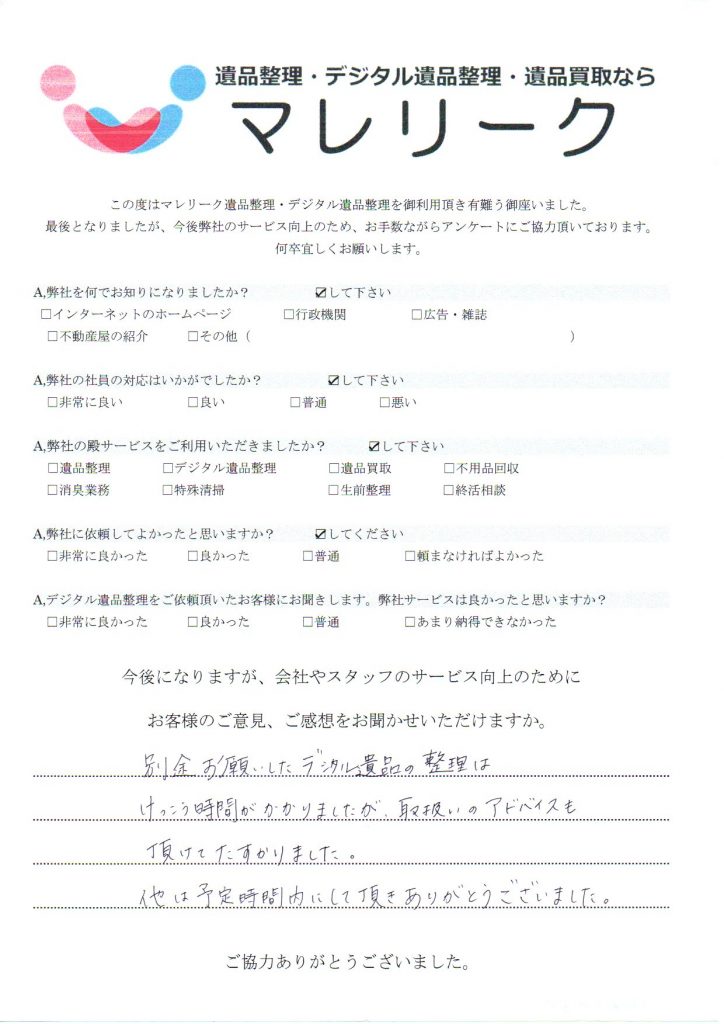 遺品整理・デジタル遺品整理・遺品買取なら
マレリーク
この度はマレリーク遺品整理・デジタル遺品整理を御利用頂き有難う御座いました。
最後となりましたが、今後弊社のサービス向上のため、お手数ながらアンケートにご協力頂いております。
何卒宜しくお願いします。
A,弊社を何でお知りになりましたか？ ☑して下さい
□インターネットのホームページ □行政機関 □広告・雑誌
□不動産屋の紹介 □その他（ ）
A,弊社の社員の対応はいかがでしたか？ ☑して下さい
□非常に良い □良い □普通 □悪い
A,弊社の殿サービスをご利用いただきましたか？ ☑して下さい
□遺品整理 □デジタル遺品整理 □遺品買取 □不用品回収
□消臭業務 □特殊清掃 □生前整理 □終活相談
A,弊社に依頼してよかったと思いますか？ ☑してください
□非常に良かった □良かった □普通 □頼まなければよかった
A,デジタル遺品整理をご依頼頂いたお客様にお聞きします。弊社サービスは良かったと思いますか？
□非常に良かった □良かった □普通 □あまり納得できなかった
今後になりますが、会社やスタッフのサービス向上のために
お客様のご意見、ご感想をお聞かせいただけますか。
別途お願いしたデジタル遺品の整理は
けっこう時間がかかりましたが、取扱いのアドバイスも
頂けてたすかりました。
他は予定時間内にして頂きありがとうございました。
ご協力ありがとうございました。